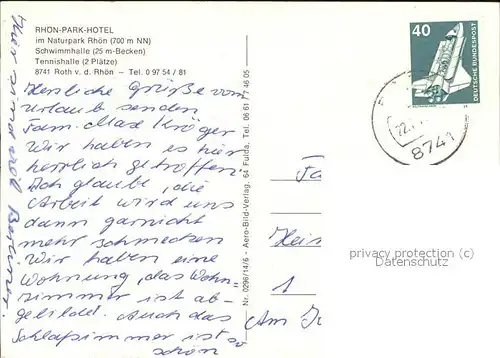 RHÖN-PARK-HOTEL
im Naturpark Rhön (700 m NN)
Schwimmhalle (25 m-Becken)
Tennishalle (2 Plätze)
8741 Roth v. d. Rhön – Tel. 0 97 54 / 81
Herzliche Grüße vom
Urlaub senden
Fam. Max Kröger
Wir haben es hier
herrlich getroffen.
Ich glaube, die
Arbeit wird uns
dann garnicht
mehr schmecken
Wir haben eine
Wohnung, das Wohn-
zimmer ist ab-
gebildet. Auch das
Schlafzimmer ist so
schön
Nr. 0296/14/6 - Aero-Bild-Verlag, 64 Fulda, Tel. 06 61 / 7 46 05
40
DEUTSCHE BUNDESPOST
22.
8741
Fa
1
Am
privacy protection (c)
Datenschutz